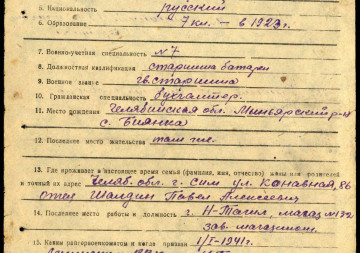 5. Национальность русский
6. Образование 7 кл. – в 1923 г.
7. Военно-учетная специальность №7
8. Должностная квалификация старшина батареи
9. Военное звание гв. старшина
10. Гражданская специальность бухгалтер.
11. Место рождения Челябинская обл. Миньярский р-н
с. Биянка
12. Последнее место жительства там же.
13. Где проживает в настоящее время семья (фамилия, имя, отчество) жены или родителей
и точный их адрес Челяб. обл. г. Сим ул. Канавная, 86
отец Шалдин Павел Алексеевич
14. Последнее место работы и должность г. Н-Тагил, магаз. №132
зав. магазином.
15. Каким райгорвоенкоматом и когда призван 1/I-1941 г.